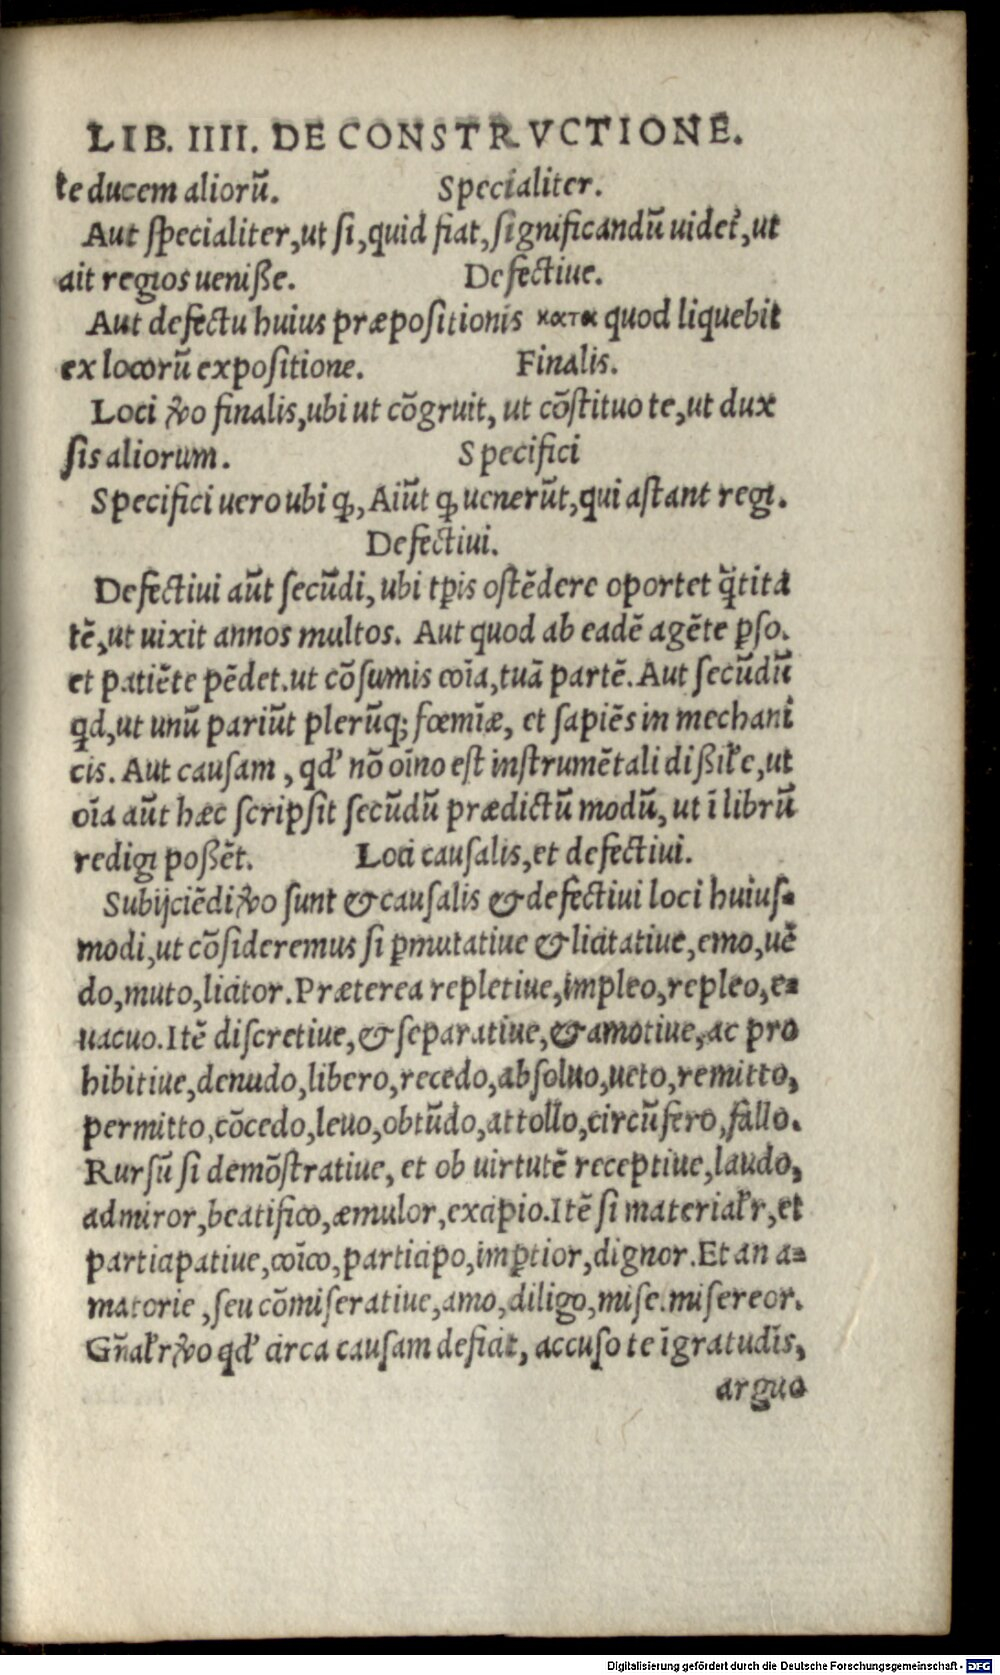 LIB. IIII. DE CONSTRVCTIONE.
te ducem aliorū. Specialiter.
Aut specialiter,ut si,quid fiat,significandū uidet᷑,ut
ait regios uenisse. Defectiue.
Aut defectu huius præpositionis κατα quod liquebit
ex locorū expositione. Finalis.
Loci ꝟo finalis,ubi ut cōgruit, ut cōstituo te,ut dux
sis aliorum. Specifici
Specifici uero ubi ꝙ, Aiūt ꝙ uenerūt,qui astant regi.
Defectiui.
Defectiui aūt secūdi, ubi tꝑis ostēdere oportet q̄tita
tē,ut uixit annos multos. Aut quod ab eadē agēte ꝑso.
et patiēte pēdet.ut cōsumis oīa,tuā partē. Aut secūdū
qd,ut unū pariūt plerūq; fœmīæ, et sapiēs in mechani
cis. Aut causam, qđ nō oīno est instrumētali dissiłe,ut
oīa aūt hæc scripsit secūdū prædictū modū, ut ī librū
redigi possēt. Loci causalis,et defectiui.
Subijciēdi ꝟo sunt & causalis & defectiui loci huius-
modi,ut cōsideremus si ꝑmutatiue & licitatiue,emo,uē
do,muto,licitor.Præterea repletiue,impleo,repleo,e-
uacuo.Itē discretiue,& separatiue,& amotiue,ac pro
hibitiue,denudo,libero,recedo,absoluo,ueto,remitto,
permitto,cōcedo,leuo,obtūdo,attollo,circūfero,fallo.
Rursū si demōstratiue, et ob uirtutē receptiue,laudo,
admiror,beatifico,æmulor,excipio.Itē si materiałr,et
participatiue,coīco,participo,imꝑtior,dignor.Et an a-
matorie,seu cōmiseratiue,amo,diligo,mise.misereor.
Gn̄ałr ꝟo qđ circa causam deficit, accuso te īgratudīs,
arguo
Digitalisierung gefördert durch die Deutsche Forschungsgemeinschaft - DFG